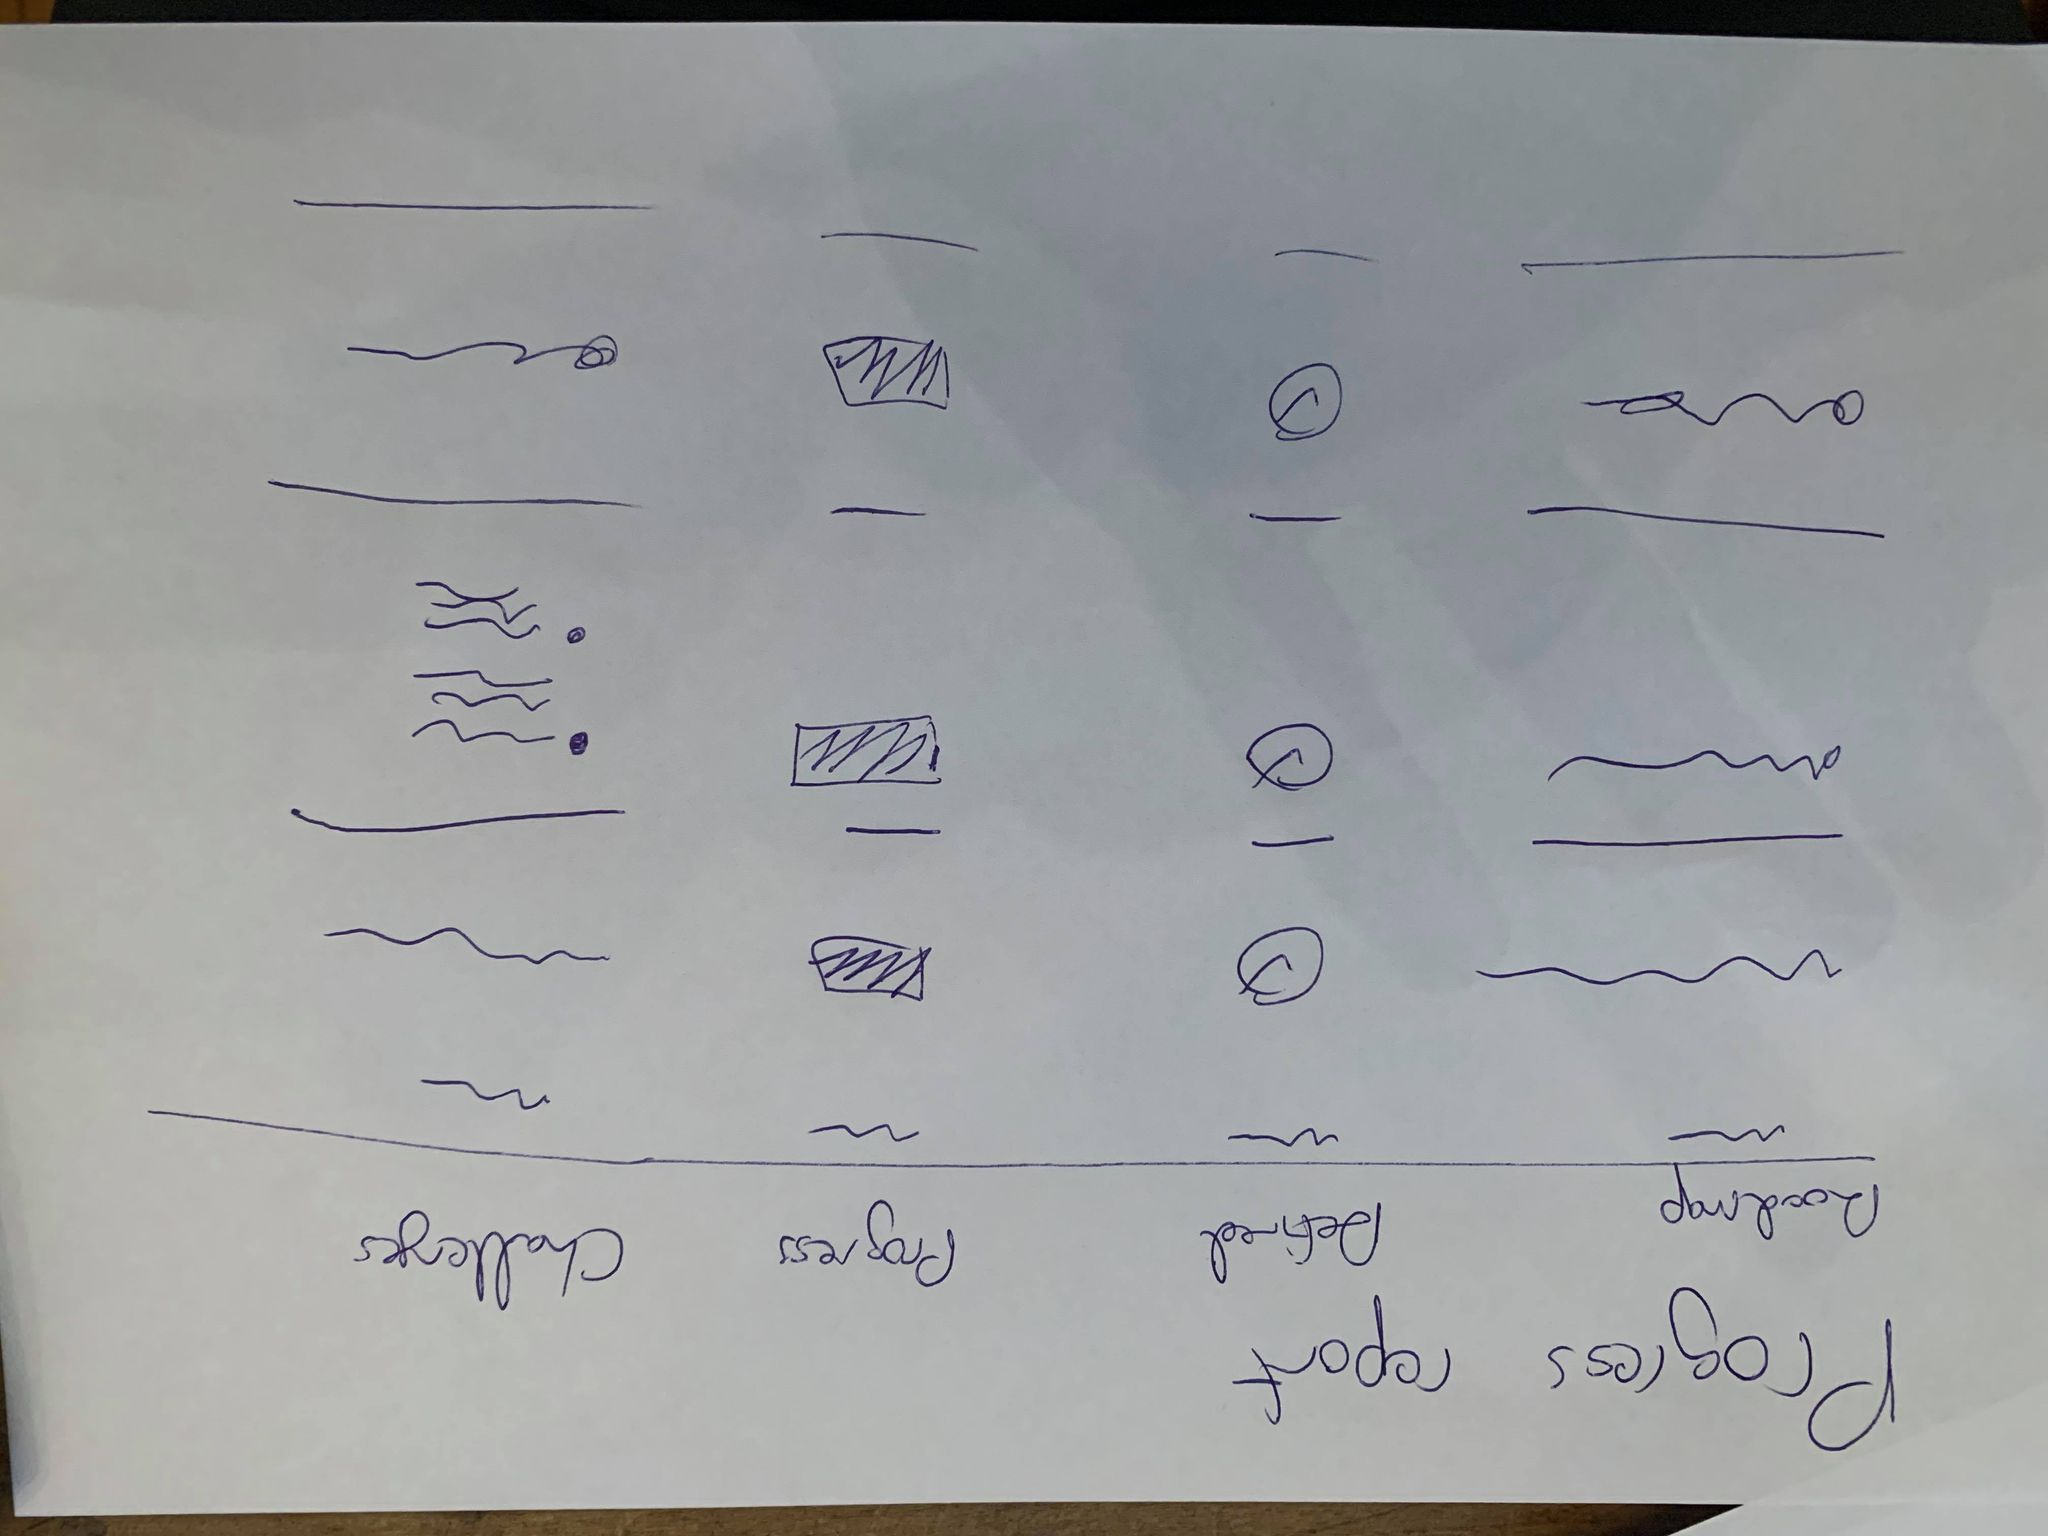 Progress report
Roadmap Defined Progress Challenges